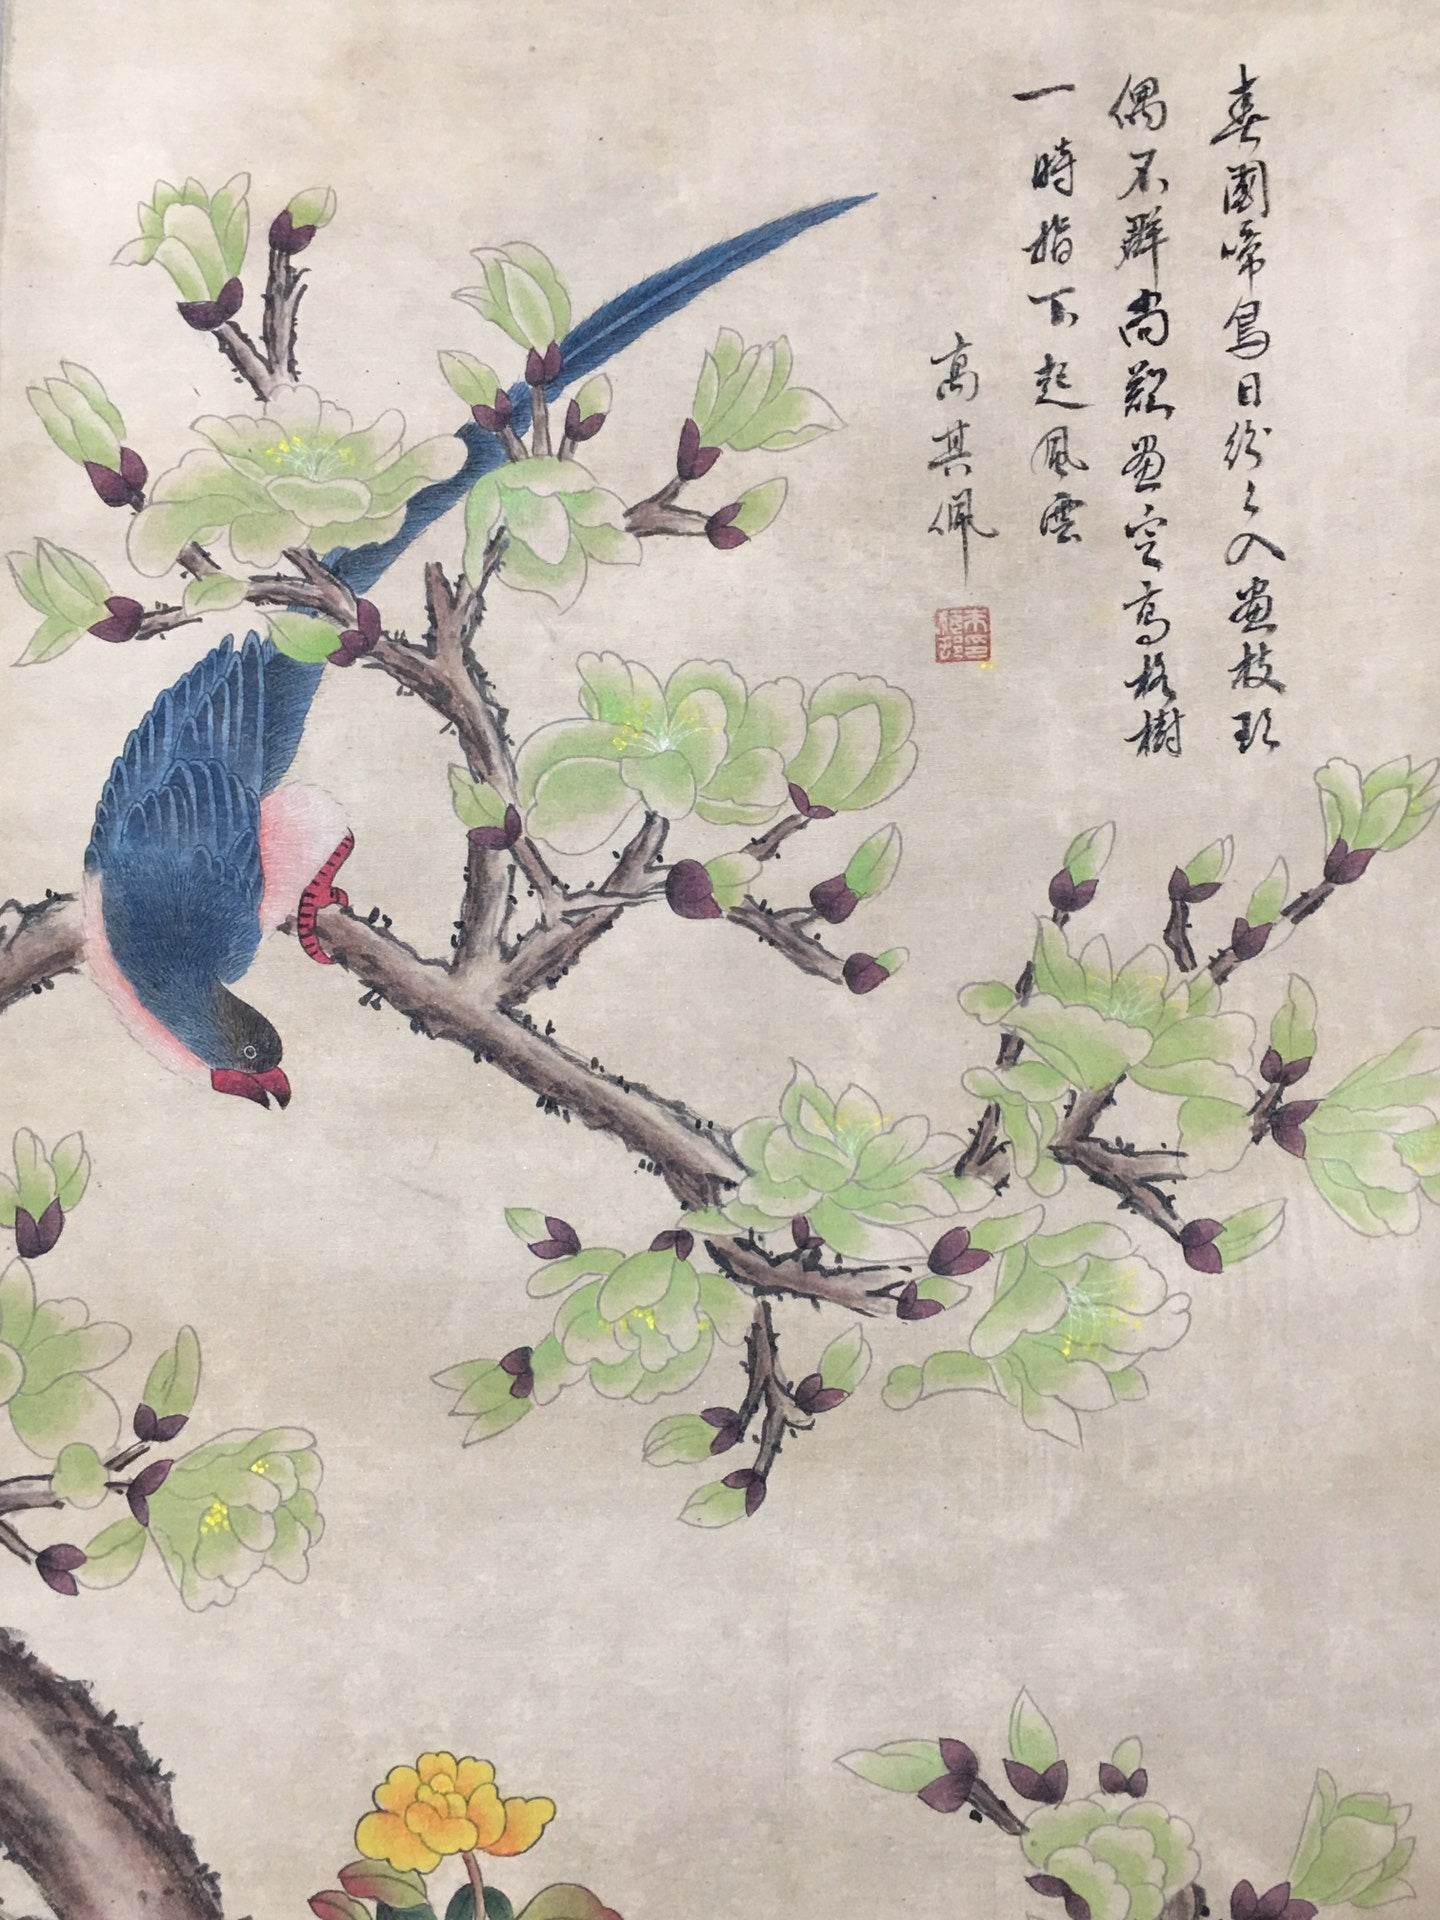 春園啼鳥日紛々入畫枝頭
偶不群尚疑畫空高格樹
一時指下起風雲
高其佩